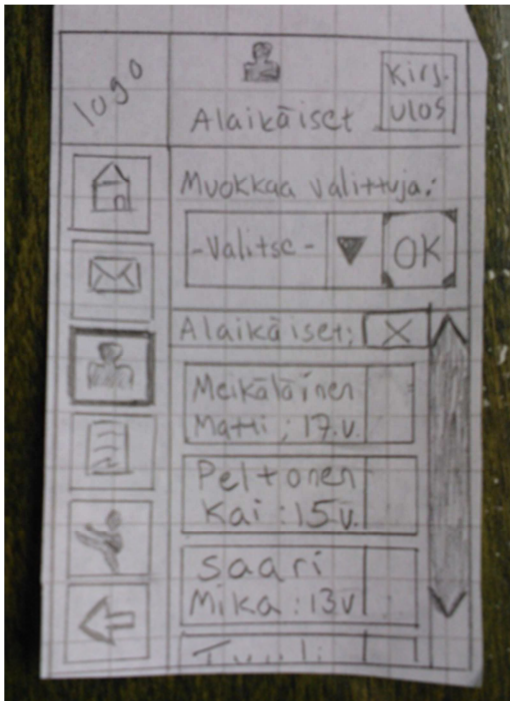 logo
Alaikäiset
Kirj.
ulos
Muokkaa valittuja:
-Valitse-
OK
Alaikäiset:
X
Meikäläinen
Matti ; 17.v.
Peltonen
Kai : 15v.
Saari
Mika : 13v